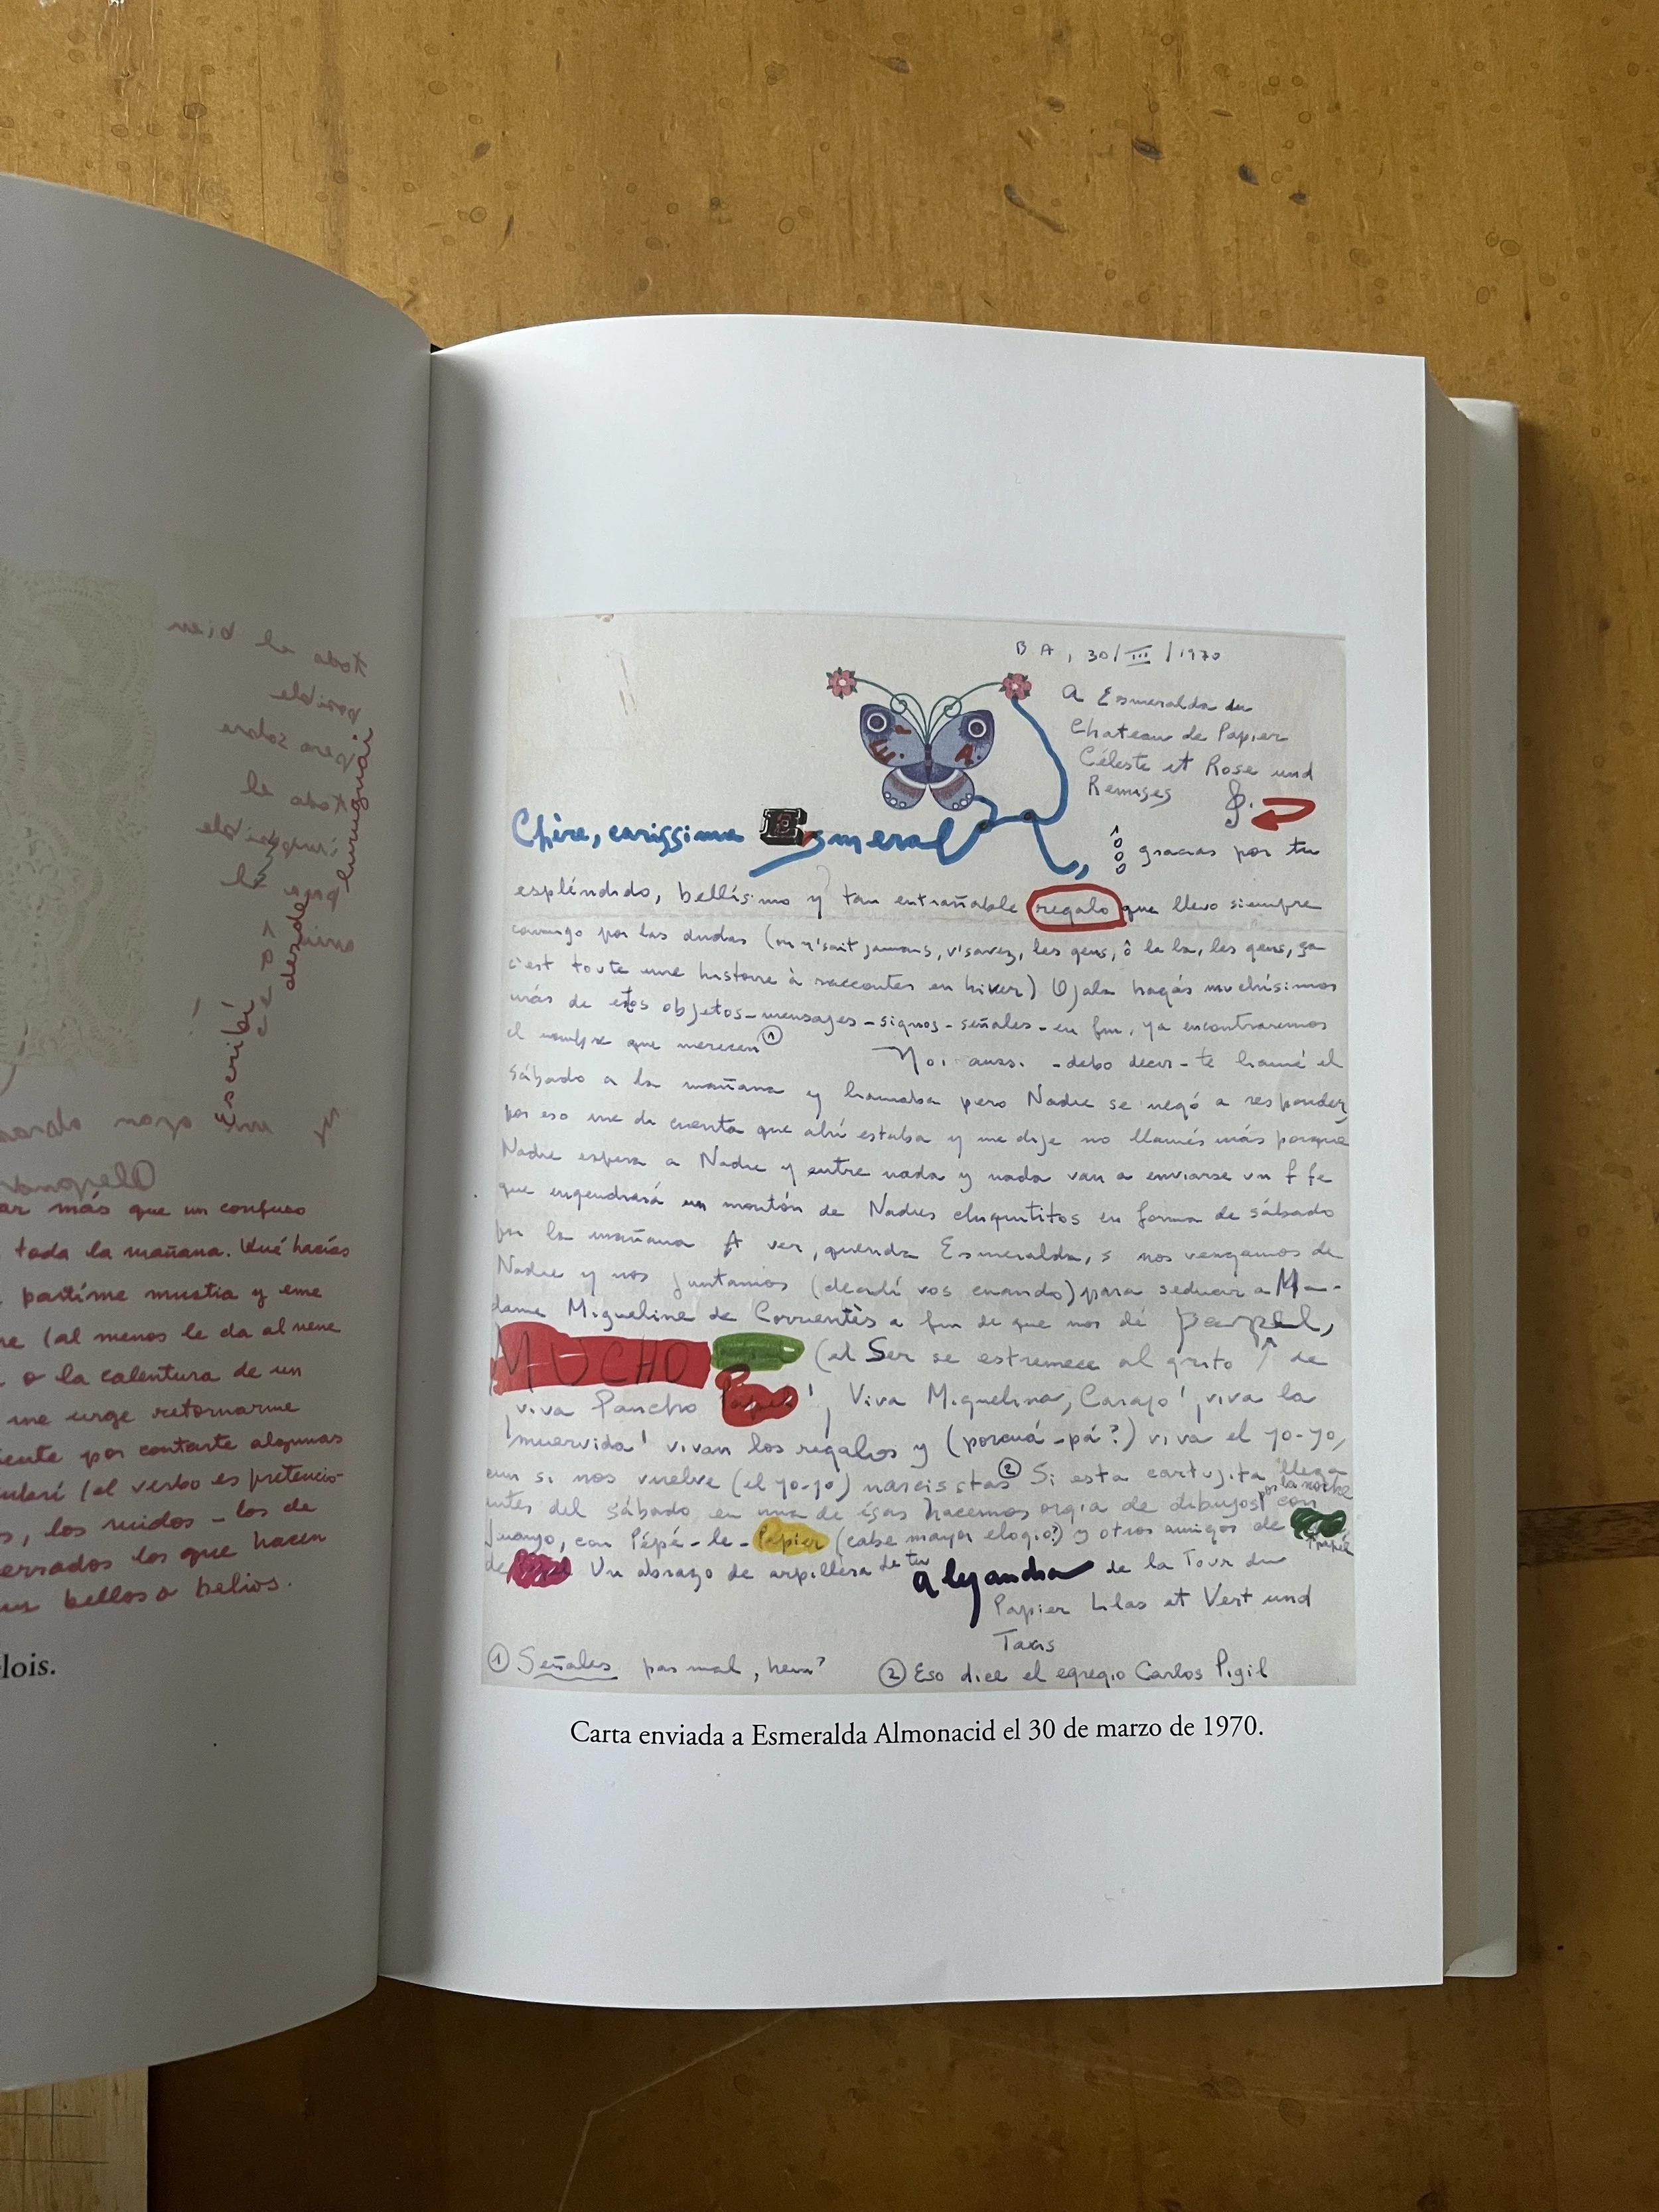 toda el bien
posible
pero sobre
toda el
Escribí
desde
ar más que un confuso
toda la mañana. Qué hacías
partirme mustia y eme
re (al menos le da al nene
o a la calentura de un
me urge retornarme
iente por contarte algunas
(el verbo es pretencio-
s, los ruidos - los de
errados los que hacen
bellos o belios.
lois.
B A, 30/III/1970
A Esmeralda du
Chateau de Papier
Céleste et Rose und
Remises
E. A.
Chère, carissima Esmeralda,
gracias por tu
espléndido, bellísimo y tan entrañable regalo que llevo siempre
conmigo por las dudas (on n'sait jamais, v'savez, les gens, ô la la, les gens, ça
c'est toute une histoire à raccouter en hiver) Ojala hagás muchísimos
más de estos objetos-mensajes-signos-señales-en fin, ya encontraremos
el nombre que merecen ①
Moi aussi -debo decir- te llamé el
sábado a la mañana y llamaba pero Nadie se negó a responder,
por eso me di cuenta que ahí estaba y me dije no llamés más porque
Nadie espera a Nadie y entre nada y nada van a enviarse un f fe
que engendrará un montón de Nadies chiquititos en forma de sábado
por la mañana A ver, querida Esmeralda, si nos vengamos de
Nadie y nos juntamos (decidí vos cuando) para seducir a Ma-
dame Migueline de Corrientès a fin de que nos dé papel,
MUCHO (el Ser se estremece al grito ↑ de
¡viva Pancho Papel! ¡Viva Miguelina, Carajo! ¡viva la
muervida! vivan los regalos y (porcuá-pá?) viva el yo-yo,
aun si nos vuelve (el yo-yo) narcisistas ② Si esta cartujita llega
antes del sábado en una de ésas hacemos orgia de dibujos por la noche con
Juanjo, con Pépé-le-Papier (cabe mayor elogio?) y otros amigos de papel
de Papel Un abrazo de arpillera de tu Alejandra de la Tour du
Papier Lilas et Vert und
Taxis
① Señales pas mal, hein?
② Eso dice el egregio Carlos Pigil
Carta enviada a Esmeralda Almonacid el 30 de marzo de 1970.